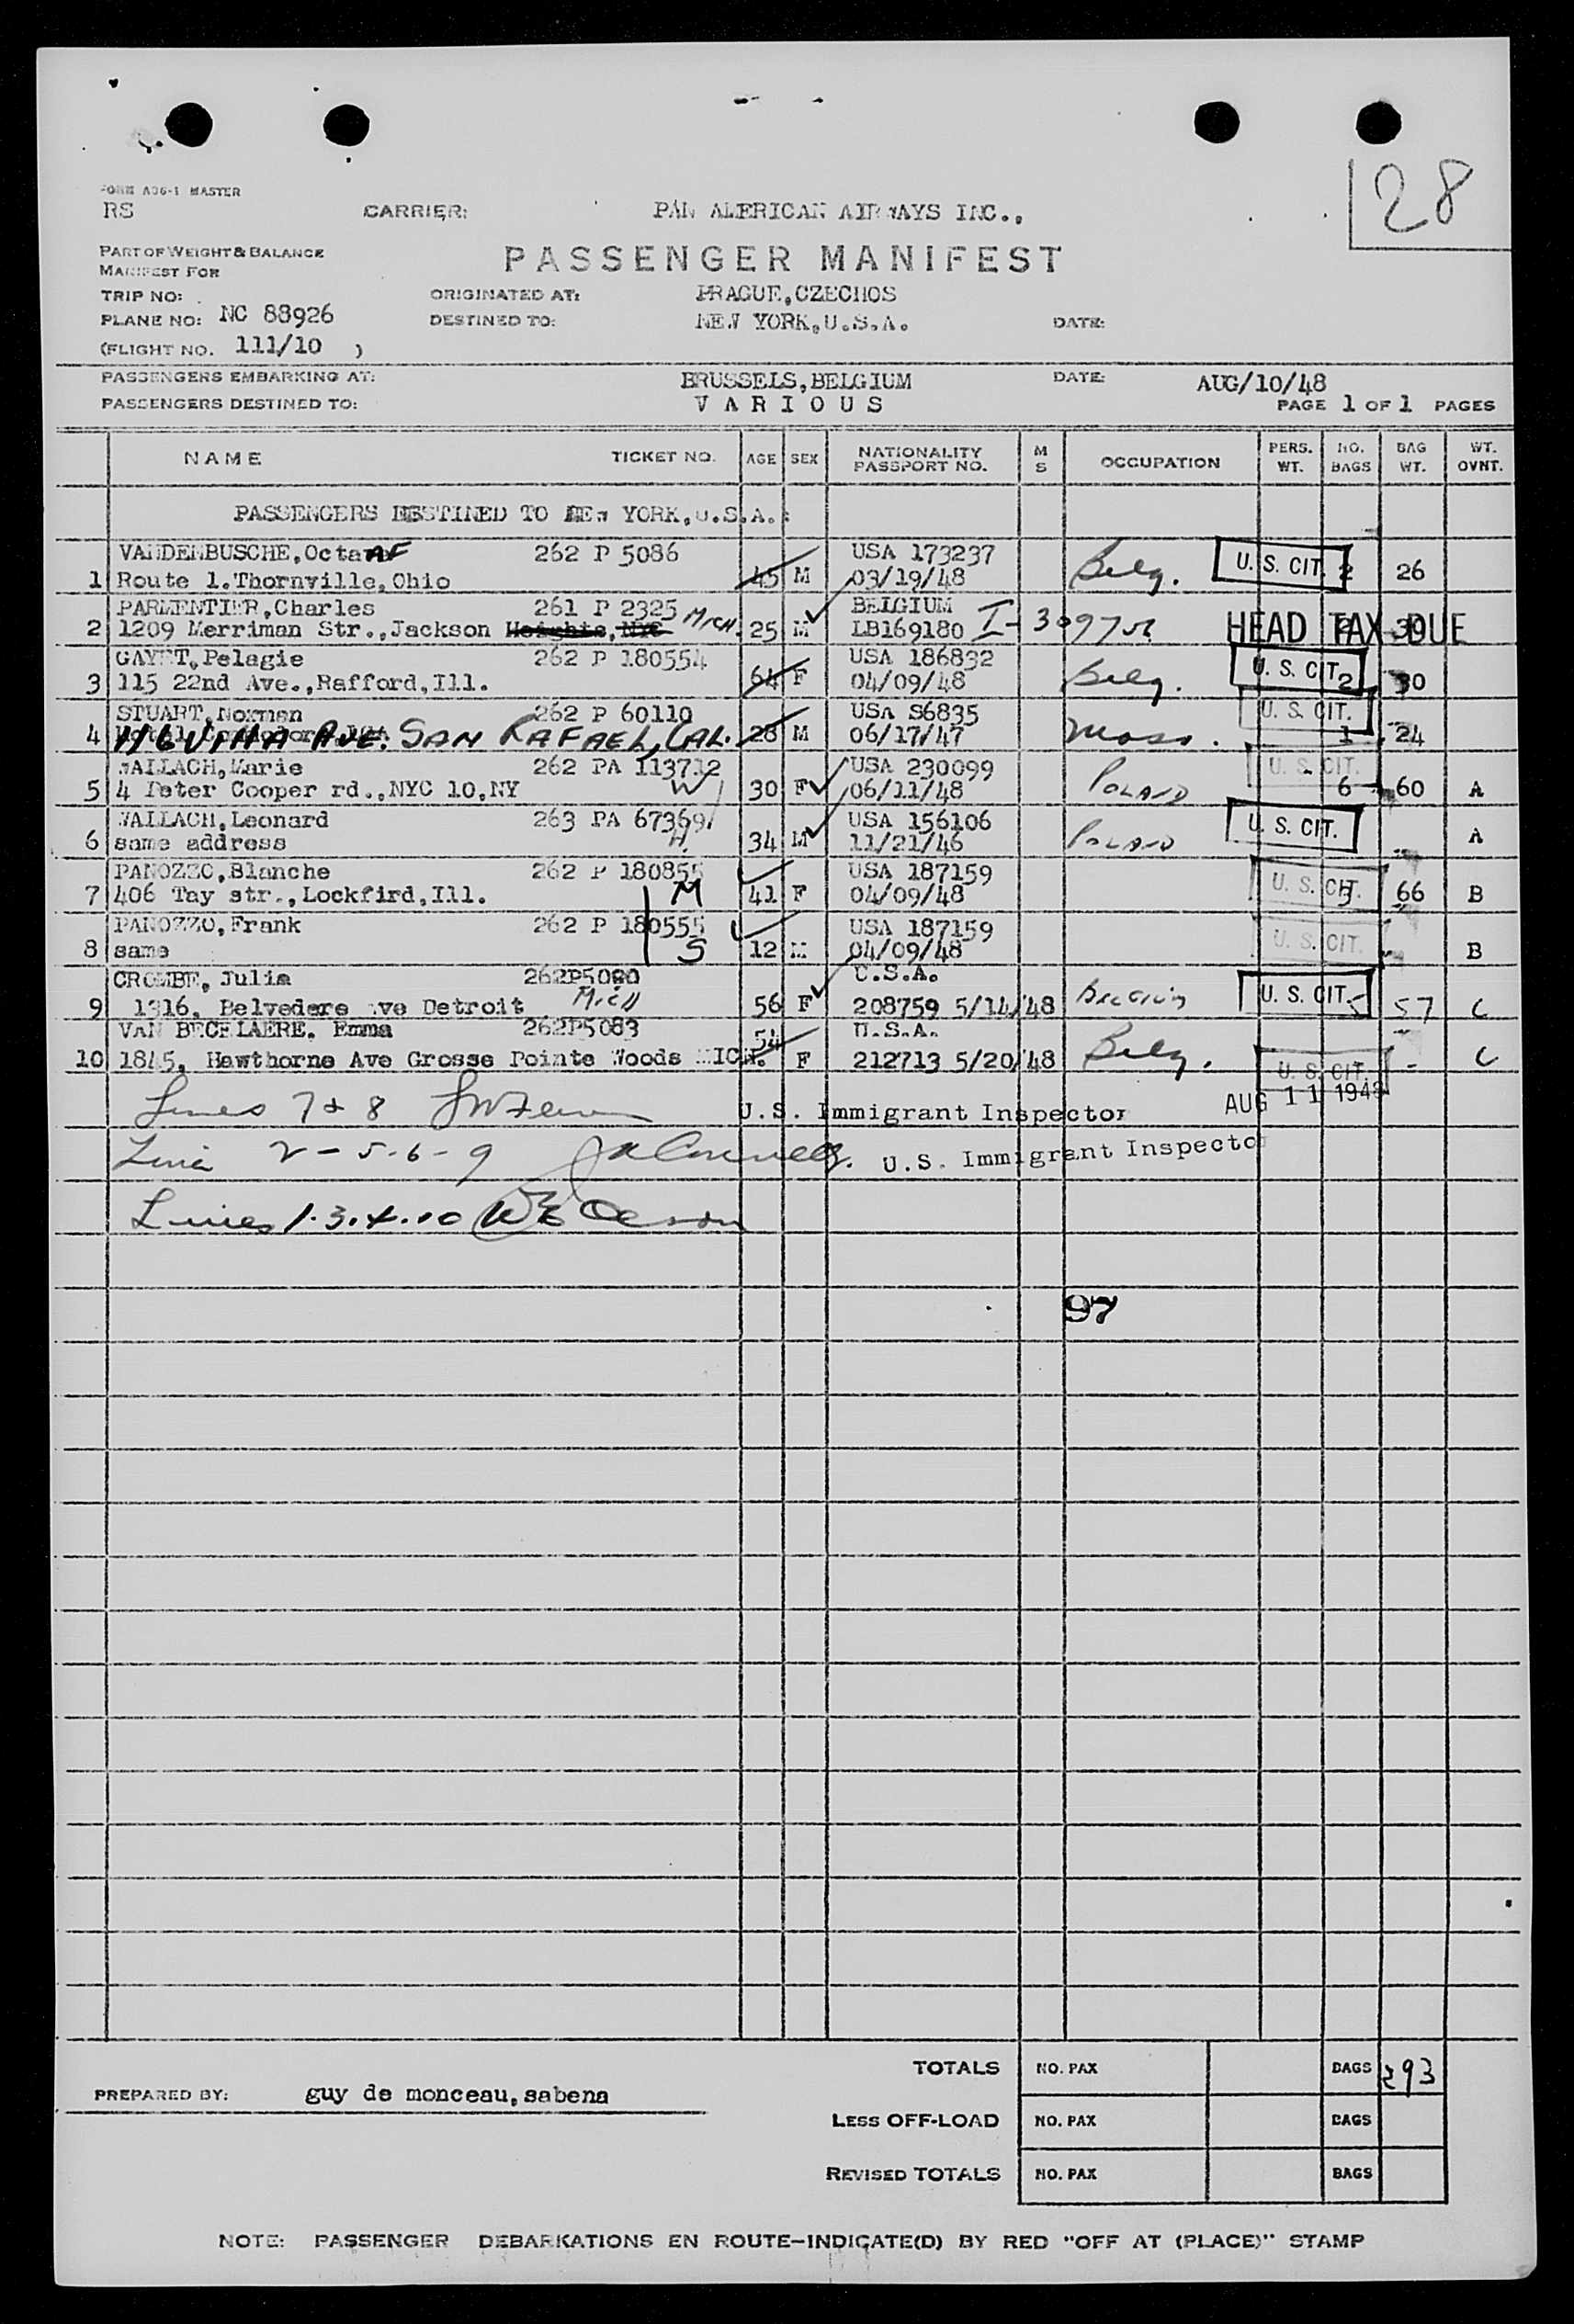 28
FORM A06-1 MASTER
RS CARRIER: PAN AMERICAN AIRWAYS INC.,
PART OF WEIGHT & BALANCE
MANIFEST FOR
PASSENGER MANIFEST
TRIP NO: ORIGINATED AT: PRAGUE,CZECHOS
PLANE NO: NC 88926 DESTINED TO: NEW YORK,U.S.A. DATE:
(FLIGHT NO. 111/10 )
PASSENGERS EMBARKING AT: BRUSSELS,BELGIUM DATE: AUG/10/48
PASSENGERS DESTINED TO: VARIOUS PAGE 1 OF 1 PAGES
NAME TICKET NO. AGE SEX NATIONALITY PASSPORT NO. M S OCCUPATION PERS. WT. NO. BAGS BAG WT. WT. OVNT.
PASSENGERS DESTINED TO NEW YORK,U.S.A.:
VANDENBUSCHE,Octa 262 P 5086 USA 173237
1 Route 1.Thornville,Ohio 45 M 03/19/48 Belg. U. S. CIT. 2 26
PARMENTIER,Charles 261 P 2325 MICH. BELGIUM
2 1209 Merriman Str.,Jackson Heights,NYC 25 M LB169180 HEAD TAX DUE
GAYET,Pelagie 262 P 180554 USA 186832
3 115 22nd Ave.,Rafford,Ill. 64 F 04/09/48 Belg. U. S. CIT. 2 30
STUART,Norman 262 P 60110 USA S6835
4 AVE. SAN RAFAEL, CAL. 28 M 06/17/47 Mass. U. S. CIT. 1 24
WALLACH,Marie 262 PA 113712 USA 230099
5 4 Peter Cooper rd.,NYC 10,NY W 30 F 06/11/48 POLAND U. S. CIT. 6 60 A
WALLACH,Leonard 263 PA 67369 USA 156106
6 same address H. 34 M 11/21/46 POLAND U. S. CIT. A
PANOZZO,Blanche 262 P 180855 USA 187159
7 406 Tay str.,Lockfird,Ill. M 41 F 04/09/48 U. S. CIT. 66 B
PANOZZO,Frank 262 P 180555 USA 187159
8 same S 12 M 04/09/48 U. S. CIT. B
CROMBE, Julia 262P5080 U.S.A.
9 1316, Belvedere Ave Detroit MICH 56 F 208759 5/14/48 BELGIUM U. S. CIT. 5 57 C
VAN BECELAERE, Emma 262P5083 54 U.S.A.
10 1845, Hawthorne Ave Grosse Pointe Woods MICH. F 212713 5/20/48 Belg. U. S. CIT. - C
AUG 11 1948
Lines 7 & 8 U.S. Immigrant Inspector
Line 2-5-6-9 U.S. Immigrant Inspector
Lines 1.3.4.10
97
TOTALS NO. PAX BAGS 293
PREPARED BY: guy de monceau,sabena
LESS OFF-LOAD NO. PAX BAGS
REVISED TOTALS NO. PAX BAGS
NOTE: PASSENGER DEBARKATIONS EN ROUTE-INDICATE(D) BY RED "OFF AT (PLACE)" STAMP